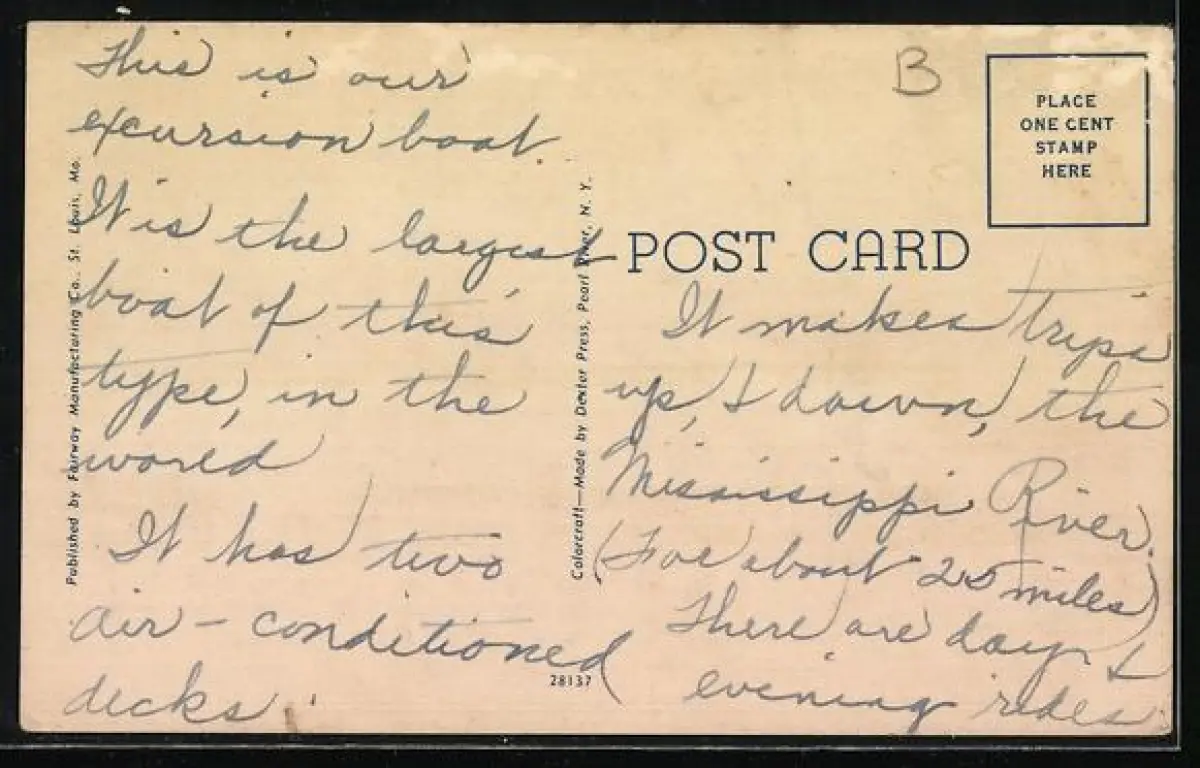 This is our
excursion boat.
It is the largest
boat of this
type, in the
world
It has two
air-conditioned
decks.
B
PLACE
ONE CENT
STAMP
HERE
POST CARD
It makes trips
up, & down, the
Mississippi River.
(For about 25 miles)
There are day &
evening rides
Published by Fairway Manufacturing Co., St. Louis, Mo.
Colorcraft—Made by Dexter Press, Pearl River, N. Y.
28137